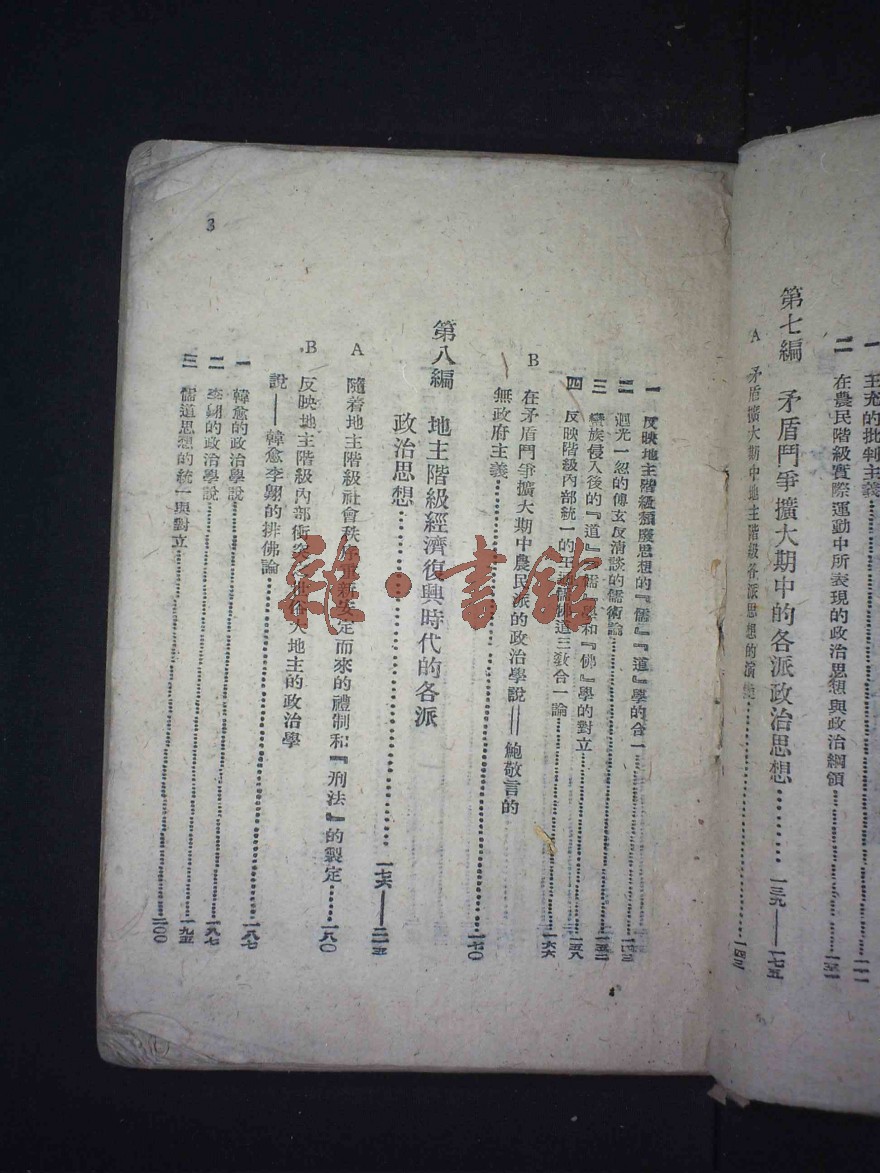 一 王充的批判主義……一二一
二 在農民階級實際運動中所表現的政治思想與政治綱領……一三一
第七編 矛盾鬥爭擴大期中的各派政治思想……一三九——一七五
A 矛盾擴大期中地主階級各派思想的演變……一四三
一 反映地主階級頹廢思想的『儒』『道』學的合一
二 迴光一忽的傅玄反清談的儒術論
三 蠻族侵入後的『道』『儒』學和『佛』學的對立……一五二
四 反映階級內部統一的王通儒佛道三教合一論……一五八
一六六
B 在矛盾鬥爭擴大期中農民派的政治學說——鮑敬言的
無政府主義……一七〇
第八編 地主階級經濟復興時代的各派
政治思想……一七六——二一五
A 隨着地主階級社會秩序重新安定而來的禮制和『刑法』的製定……一八〇
B 反映地主階級內部衝突之世俗大地主的政治學
說——韓愈李翱的排佛論……一八七
一 韓愈的政治學說……一八七
二 李翱的政治學說……一九五
三 儒道思想的統一與對立……二〇〇
3
雜·書館